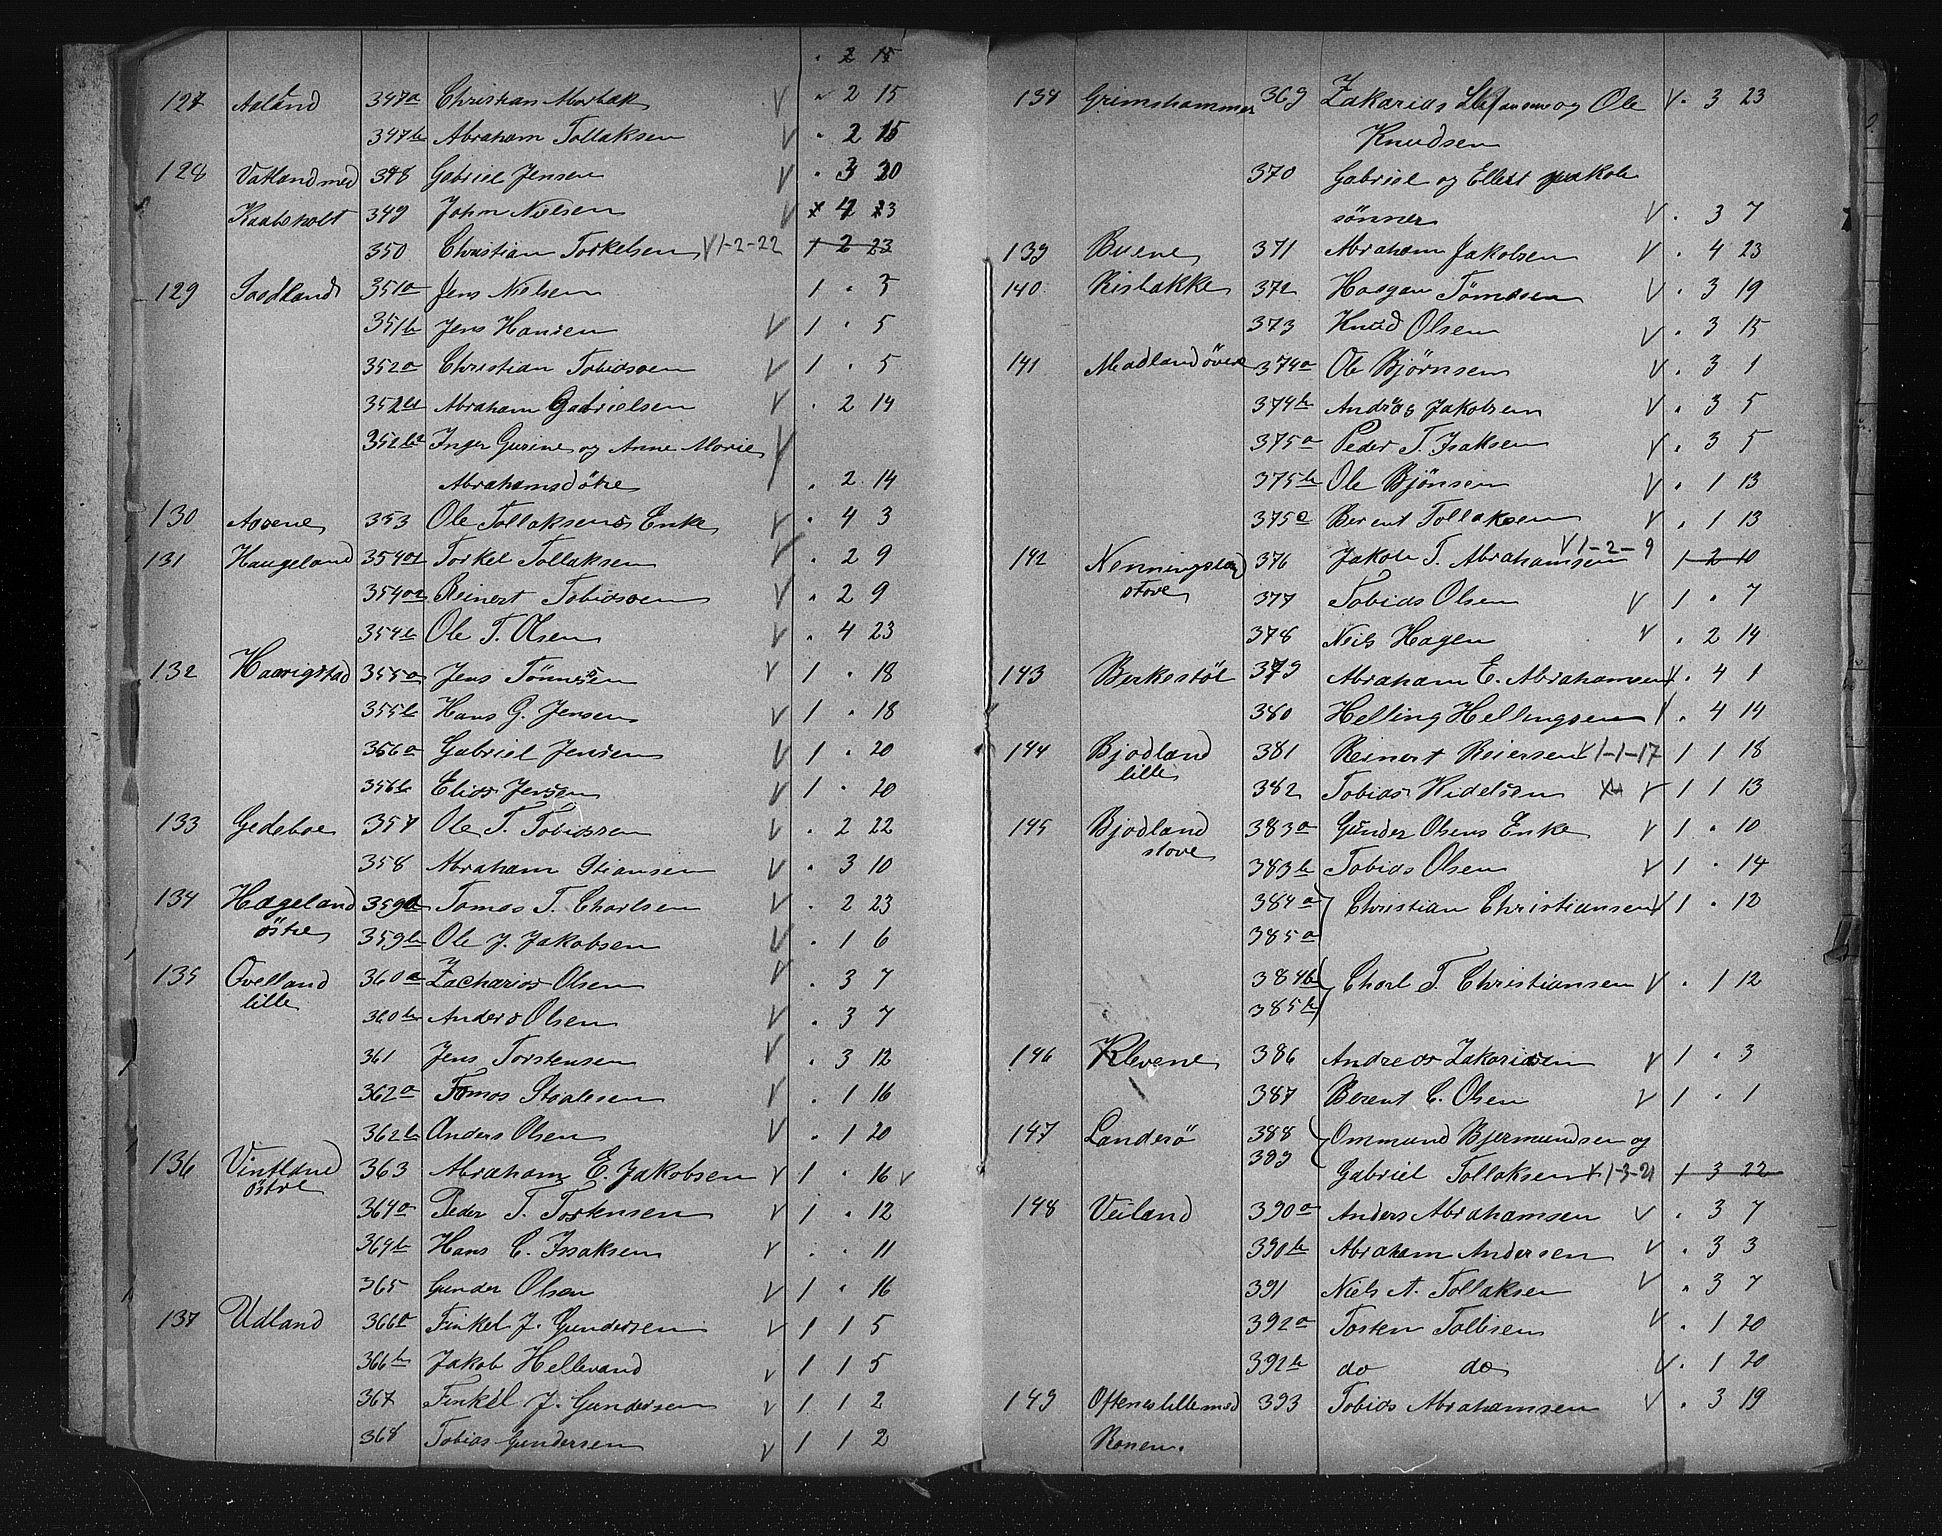 " 2 15
127 Aaland 347a Christian Morbak V " 2 15
347b Abraham Tollaksen V " 2 15
128 Vatland med 348 Gabriel Jensen V " 3 20
Kaabeholt 349 John Nielsen V 4 23
350 Christian Torkelsen V 1-2-22 1 2 23
129 351a Jens Nielsen 1 " 5
351b Jens Hansen V 1 " 5
352a Christian Tobiassen V 1 " 5
352 Abraham Gabrielsen V " 2 14
352 Inger Gurine og Anne Marie
Abrahamsdötre " 2 14
130 Aasene 353 Ole Tollaksens Enke V " 4 3
131 Haugeland 354 Torkel Tollaksen V " 2 9
354 Reinert Tobiassen V " 2 9
354b Ole T. Olsen V " 4 23
132 Haarigstad 355a Jens Tönnesen V 1 " 18
355b Hans G. Jensen V 1 " 18
356a Gabriel Jensen V 1 " 20
356b Elias Jensen V 1 " 20
133 Gedeboe 357 Ole T. Tobiassen V " 2 22
358 Abraham Stiansen V " 3 10
134 Hægeland 359a Tomas T. Charlsen V " 2 23
östre 359b Ole J. Jakobsen V " 1 6
135 Ovelland 360a Zacharias Olsen V " 3 7
lille 360b Anders Olsen V " 3 7
361 Jens Torstensen V " 3 12
362a Tomas Staalesen V " 1 16
362b Anders Olsen V " 1 20
136 Vintland 363 Abraham E. Jakobsen V 1 " 16 V
östre 364a Peder T. Torkensen V 1 " 12
364b Hans C. Issaksen V " " 11
365 Gunder Olsen V 1 " 16
137 Udland 366a Finkel J. Gundersen V 1 1 5
366b Jakob Hellevand V 1 1 5
367 Finkel J. Gundersen V 1 1 2
368 Tobias Gundersen V 1 1 2
138 Grimshammer 369 Zakarias Stefansen og Ole V " 3 23
Knudsen
370 Gabriel og Ellert Jakob
sönner V " 3 7
139 Buene 371 Abraham Jakobsen V " 4 23
140 Rislakke 372 Haagan Tömesen V " 3 19
373 Knud Olsen V " 3 15
141 Modland övre 374a Ole Bjørnsen V " 3 1
374b Andrias Jakobsen V " 3 5
375a Peder T. Isaksen V " 3 5
375b Ole Bjönsen V " 1 13
375c Berent Tollaksen V " 1 13
142 Nenningsland 376 Jakob T. Abrahamsen V 1-2-9 1 2 10
store 377 Tobias Olsen V 1 " 7
378 Neils Hagen V " 2 14
143 Berkestöl 379 Abraham E. Abrahamsen V " 4 1
380 Helling Hellingsen V " 4 14
144 Bjodland 381 Reinert Reiersen V 1-1-17 1 1 18
lille 382 Tobias Hidelsen V 1 1 13
145 Bjodland 383a Gunder Olsens Enke V 1 " 10
store 383b Tobias Olsen V 1 " 14
384a Christian Christiansen V 1 " 12
385a
384b Charl T. Christiansen V " 1 12
385b
146 Klevene 386 Andreas Zakariasen V 1 " 3
387 Berent C. Olsen V 1 " 1
147 Landerö 388 Ommund Bjermundsen og
389 Gabriel Tollaksen V 1-3-21 1 3 22
148 Veiland 390a Anders Abrahamsen V " 3 7
390b Abraham Andersen V " 3 3
391 Niels A. Tollaksen V " 3 7
392a Tosten Tollisen V " 1 20
392b do do V " 1 20
149 Oftenes lille med 393 Tobias Abrahamsen V " 3 19
Ronen.